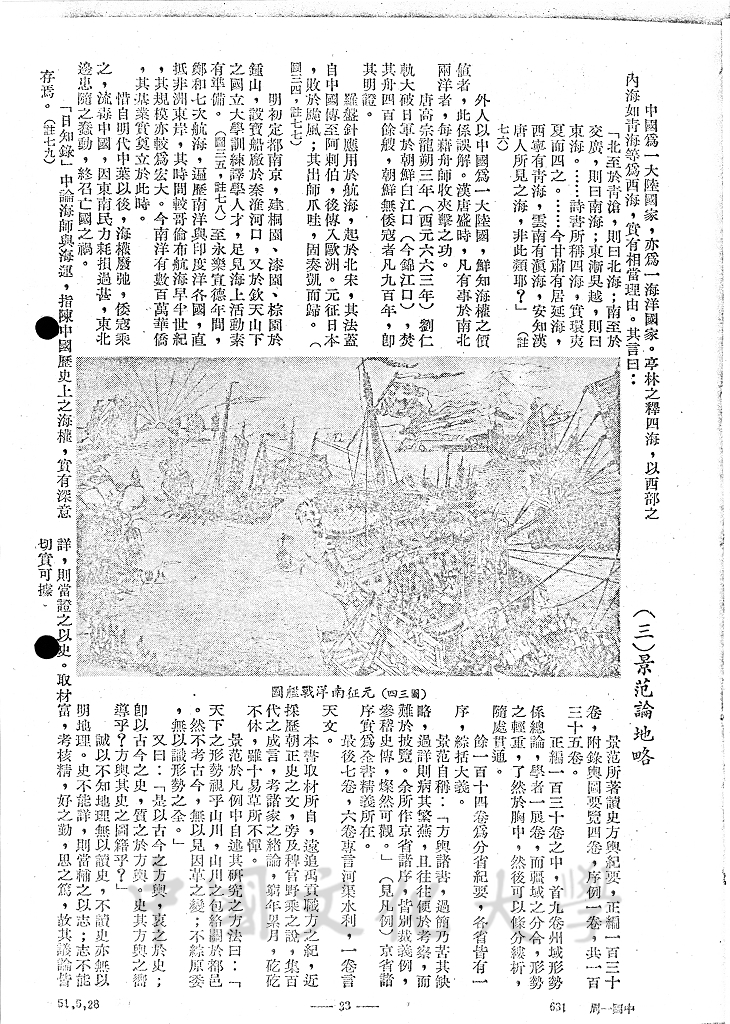 中國爲一大陸國家，亦爲一海洋國家。亭林之釋四海，以西部之
內海如青海等爲西海，實有相當理由。其言曰：
「北至於青滄，則曰北海；南至於
交廣，則曰南海；東漸吳越，則曰
東海。……詩書所稱四海，實環夷
夏而四之。……今甘肅有居延海，
西寧有青海，雲南有滇海，安知漢
唐人所見之海，非此類耶？」（註
七六）
外人以中國爲一大陸國，鮮知海權之價
值者，此係誤解。漢唐盛時，凡有事於南北
兩洋者，每藉舟師收夾擊之功。
唐高宗龍朔三年（西元六六三年）劉仁
軌大破日軍於朝鮮白江口（今錦江口），焚
其舟四百餘艘，朝鮮無倭寇者凡九百年，卽
其明證。
羅盤針應用於航海，起於北宋，其法蓋
自中國傳至阿剌伯，後傳入歐洲。元征日本
，敗於颶風；其出師爪哇，固奏凱而歸。（
圖三四，註七七）
明初定都南京，建桐園、漆園、棕園於
鍾山，設寶船廠於秦淮河口，又於欽天山下
之國立大學訓練譯學人才，足見海上活動素
有準備。（圖三五，註七八）至永樂宣德年間，
鄭和七次航海，遍歷南洋與印度洋各國，直
抵非洲東岸，其時間較哥倫布航海早半世紀
，其規模亦較爲宏大。今南洋有數百萬華僑
，其基業實奠立於此時。
惜自明代中葉以後，海權廢弛，倭寇乘
之，流毒中國，因東南民力耗損過甚，東北
邊患隨之蠢動，終召亡國之禍。
「日知錄」中論海師與海運，指陳中國歷史上之海權，實有深意
存焉。（註七九）
圖艦戰洋南征元（四三圖）
（三）景范論地略
景范所著讀史方輿紀要，正編一百三十
卷，附錄輿圖要覽四卷，序例一卷，共一百
三十五卷。
正編一百三十卷之中，首九卷州域形勢
係總論，學者一展卷，而疆域之分合，形勢
之輕重，了然於胸中，然後可以條分縷析，
隨處貫通。
餘一百十四卷爲分省紀要，各省皆有一
序，綜括大義。
景范自稱：「方輿諸書，過簡乃苦其缺
略，過詳則病其繁蕪，且往往便於考察，而
難於披覽。余所作京省諸序，皆別裁義例，
參稽史傳，燦然可觀。」（見凡例）京省諸
序實爲全書精義所在。
最後七卷，六卷專言河渠水利，一卷言
天文。
本書取材所自，遠追禹貢職方之紀，近
採歷朝正史之文，旁及稗官野乘之說，集百
代之成言，考諸家之緒論，窮年累月，矻矻
不休，雖十易草所不憚。
景范於凡例中自述其研究之方法曰：「
天下之形勢視乎山川，山川之包絡關於都邑
。然不考古今，無以見因革之變；不綜原委
，無以識形勢之全。」
又曰：「是以古今之方輿，衷之於史；
卽以古今之史，質之於方輿。史其方輿之嚮
導乎？方輿其史之圖籍乎？」
誠以不知地理無以讀史，不讀史亦無以
明地理。史不能詳，則當補之以志；志不能
詳，則當證之以史。取材富，考核精，好之勤，思之篤，故其議論皆
切實可據。
51,5,28
— 33 —
631 周一國中
中國文化大學